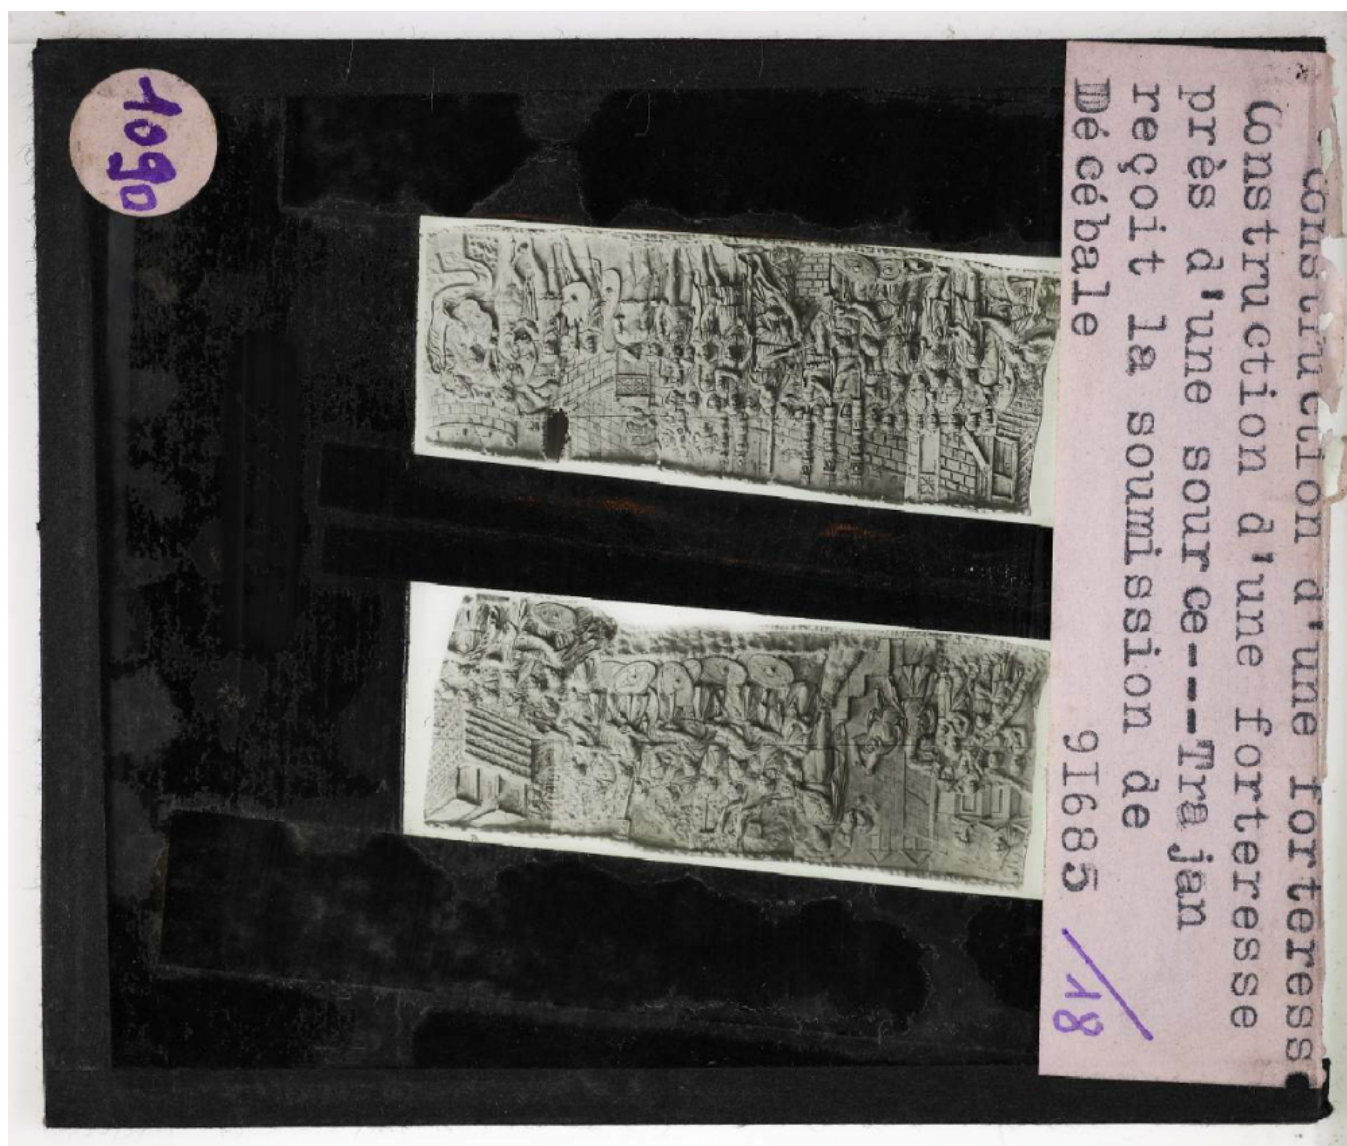 Construction d'une forteress
Construction d'une forteresse
près d'une source---Trajan
reçoit la soumission de
Décébale
9I685 / 18
1090